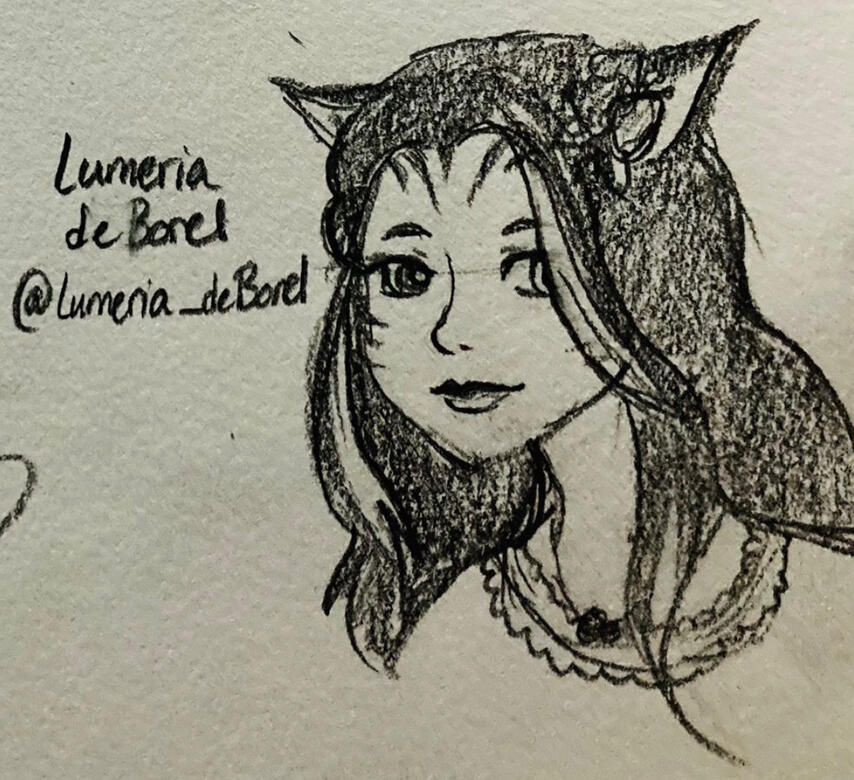 Lumeria
de Borel
@Lumeria_deBorel